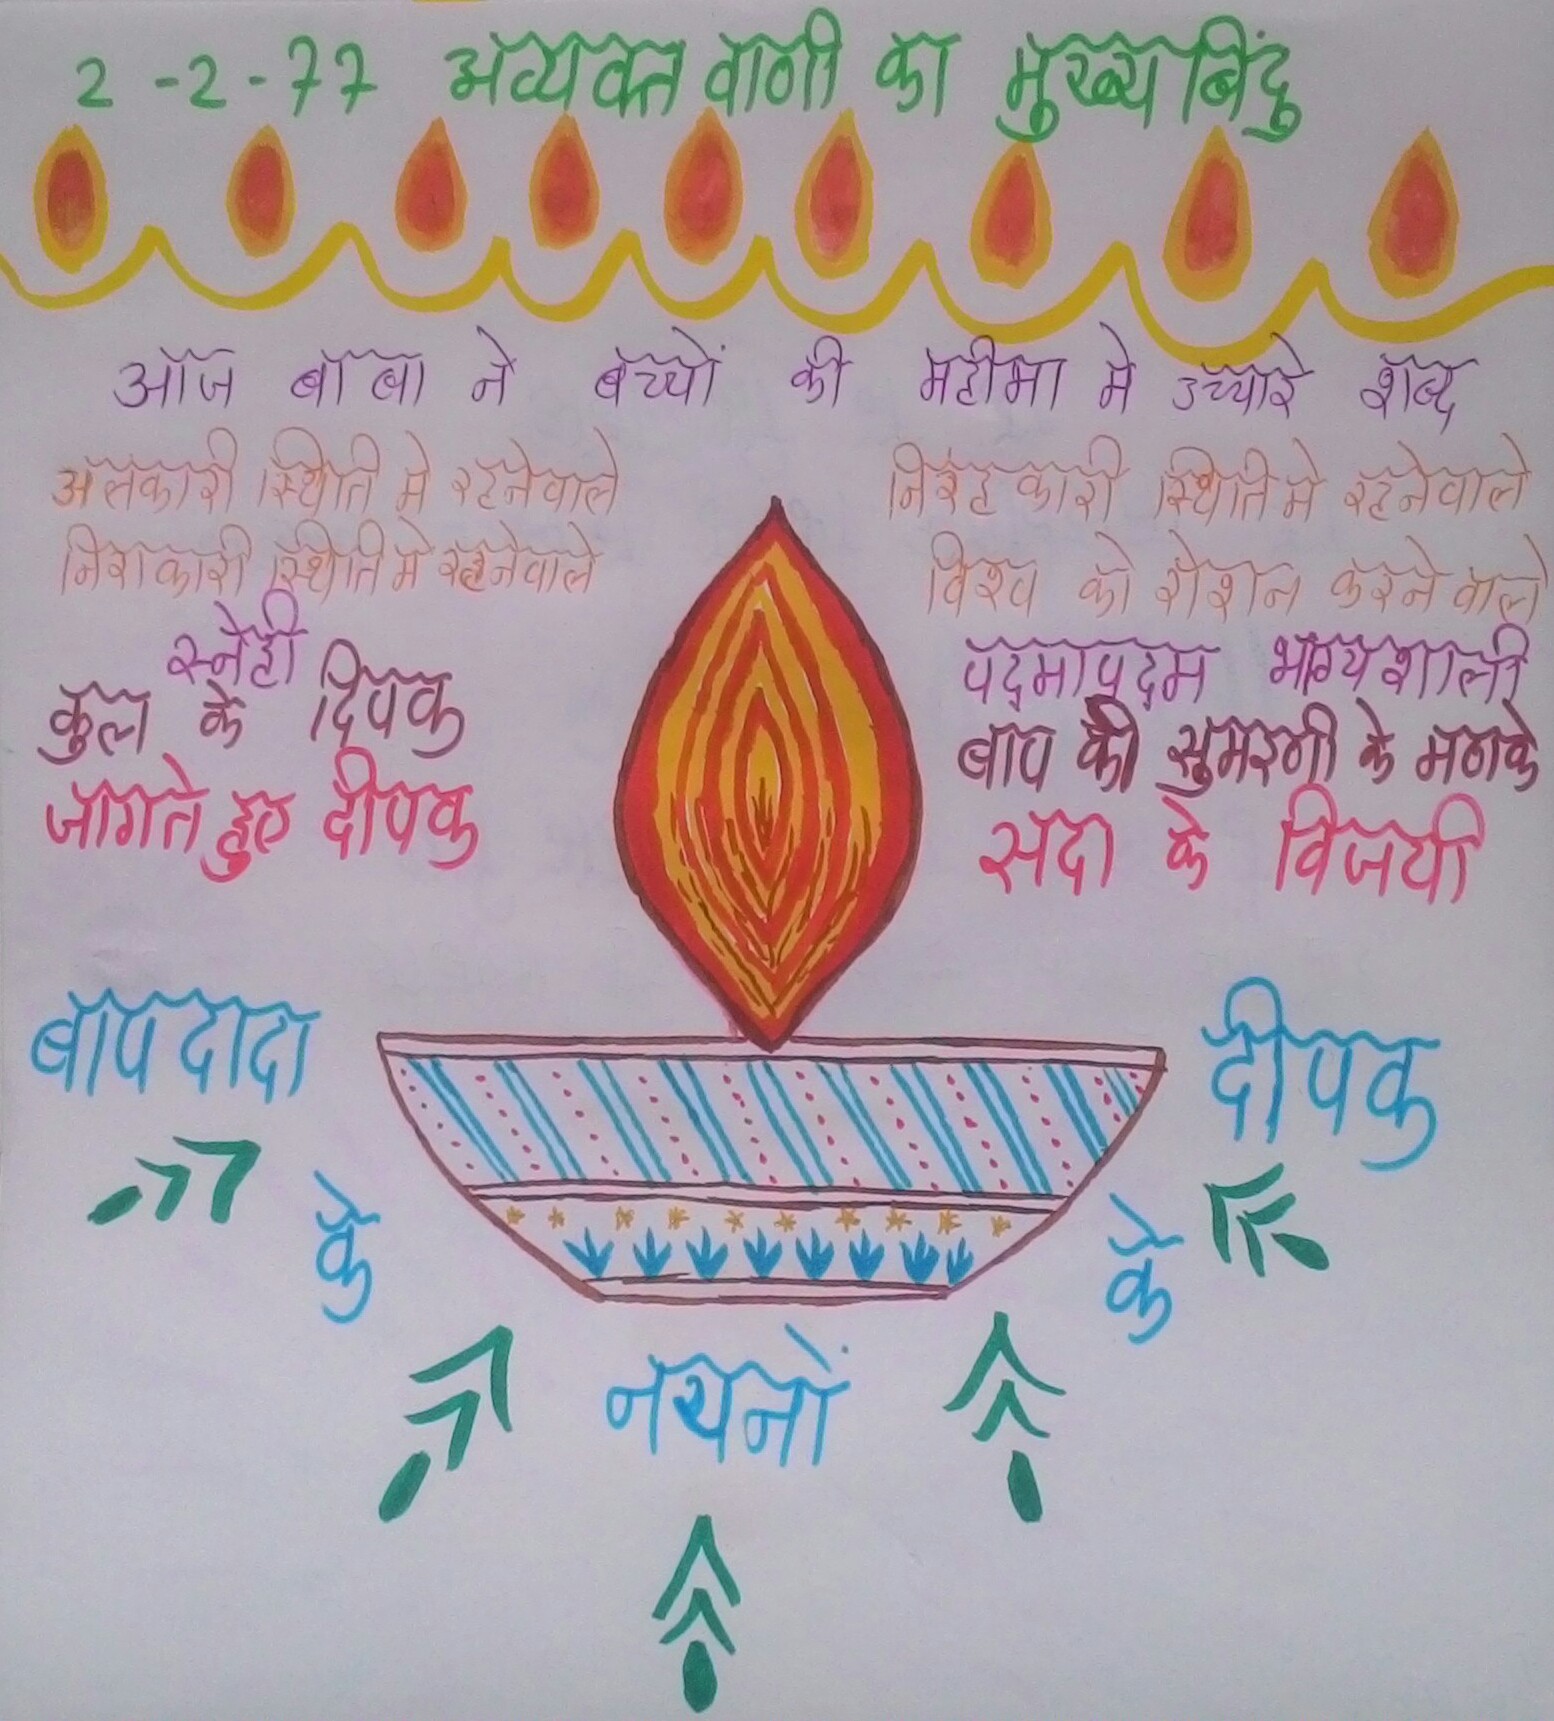 2-2-77 अव्यक्त वाणी का मुख्य बिंदु
आज बाबा ने बच्चों की महीमा मे उच्चारे शब्द
अलंकारी स्थिति मे रहनेवाले
निरहंकारी स्थिति मे रहनेवाले
निराकारी स्थिति मे रहनेवाले
विश्व को रोशन करने वाले
स्नेही
पद्मापद्म भाग्यशाली
कुल के दिपक
बाप की सुमरणी के मणके
जागते हुए दीपक
सदा के विजयी
बापदादा
के
नयनों
के
दीपक